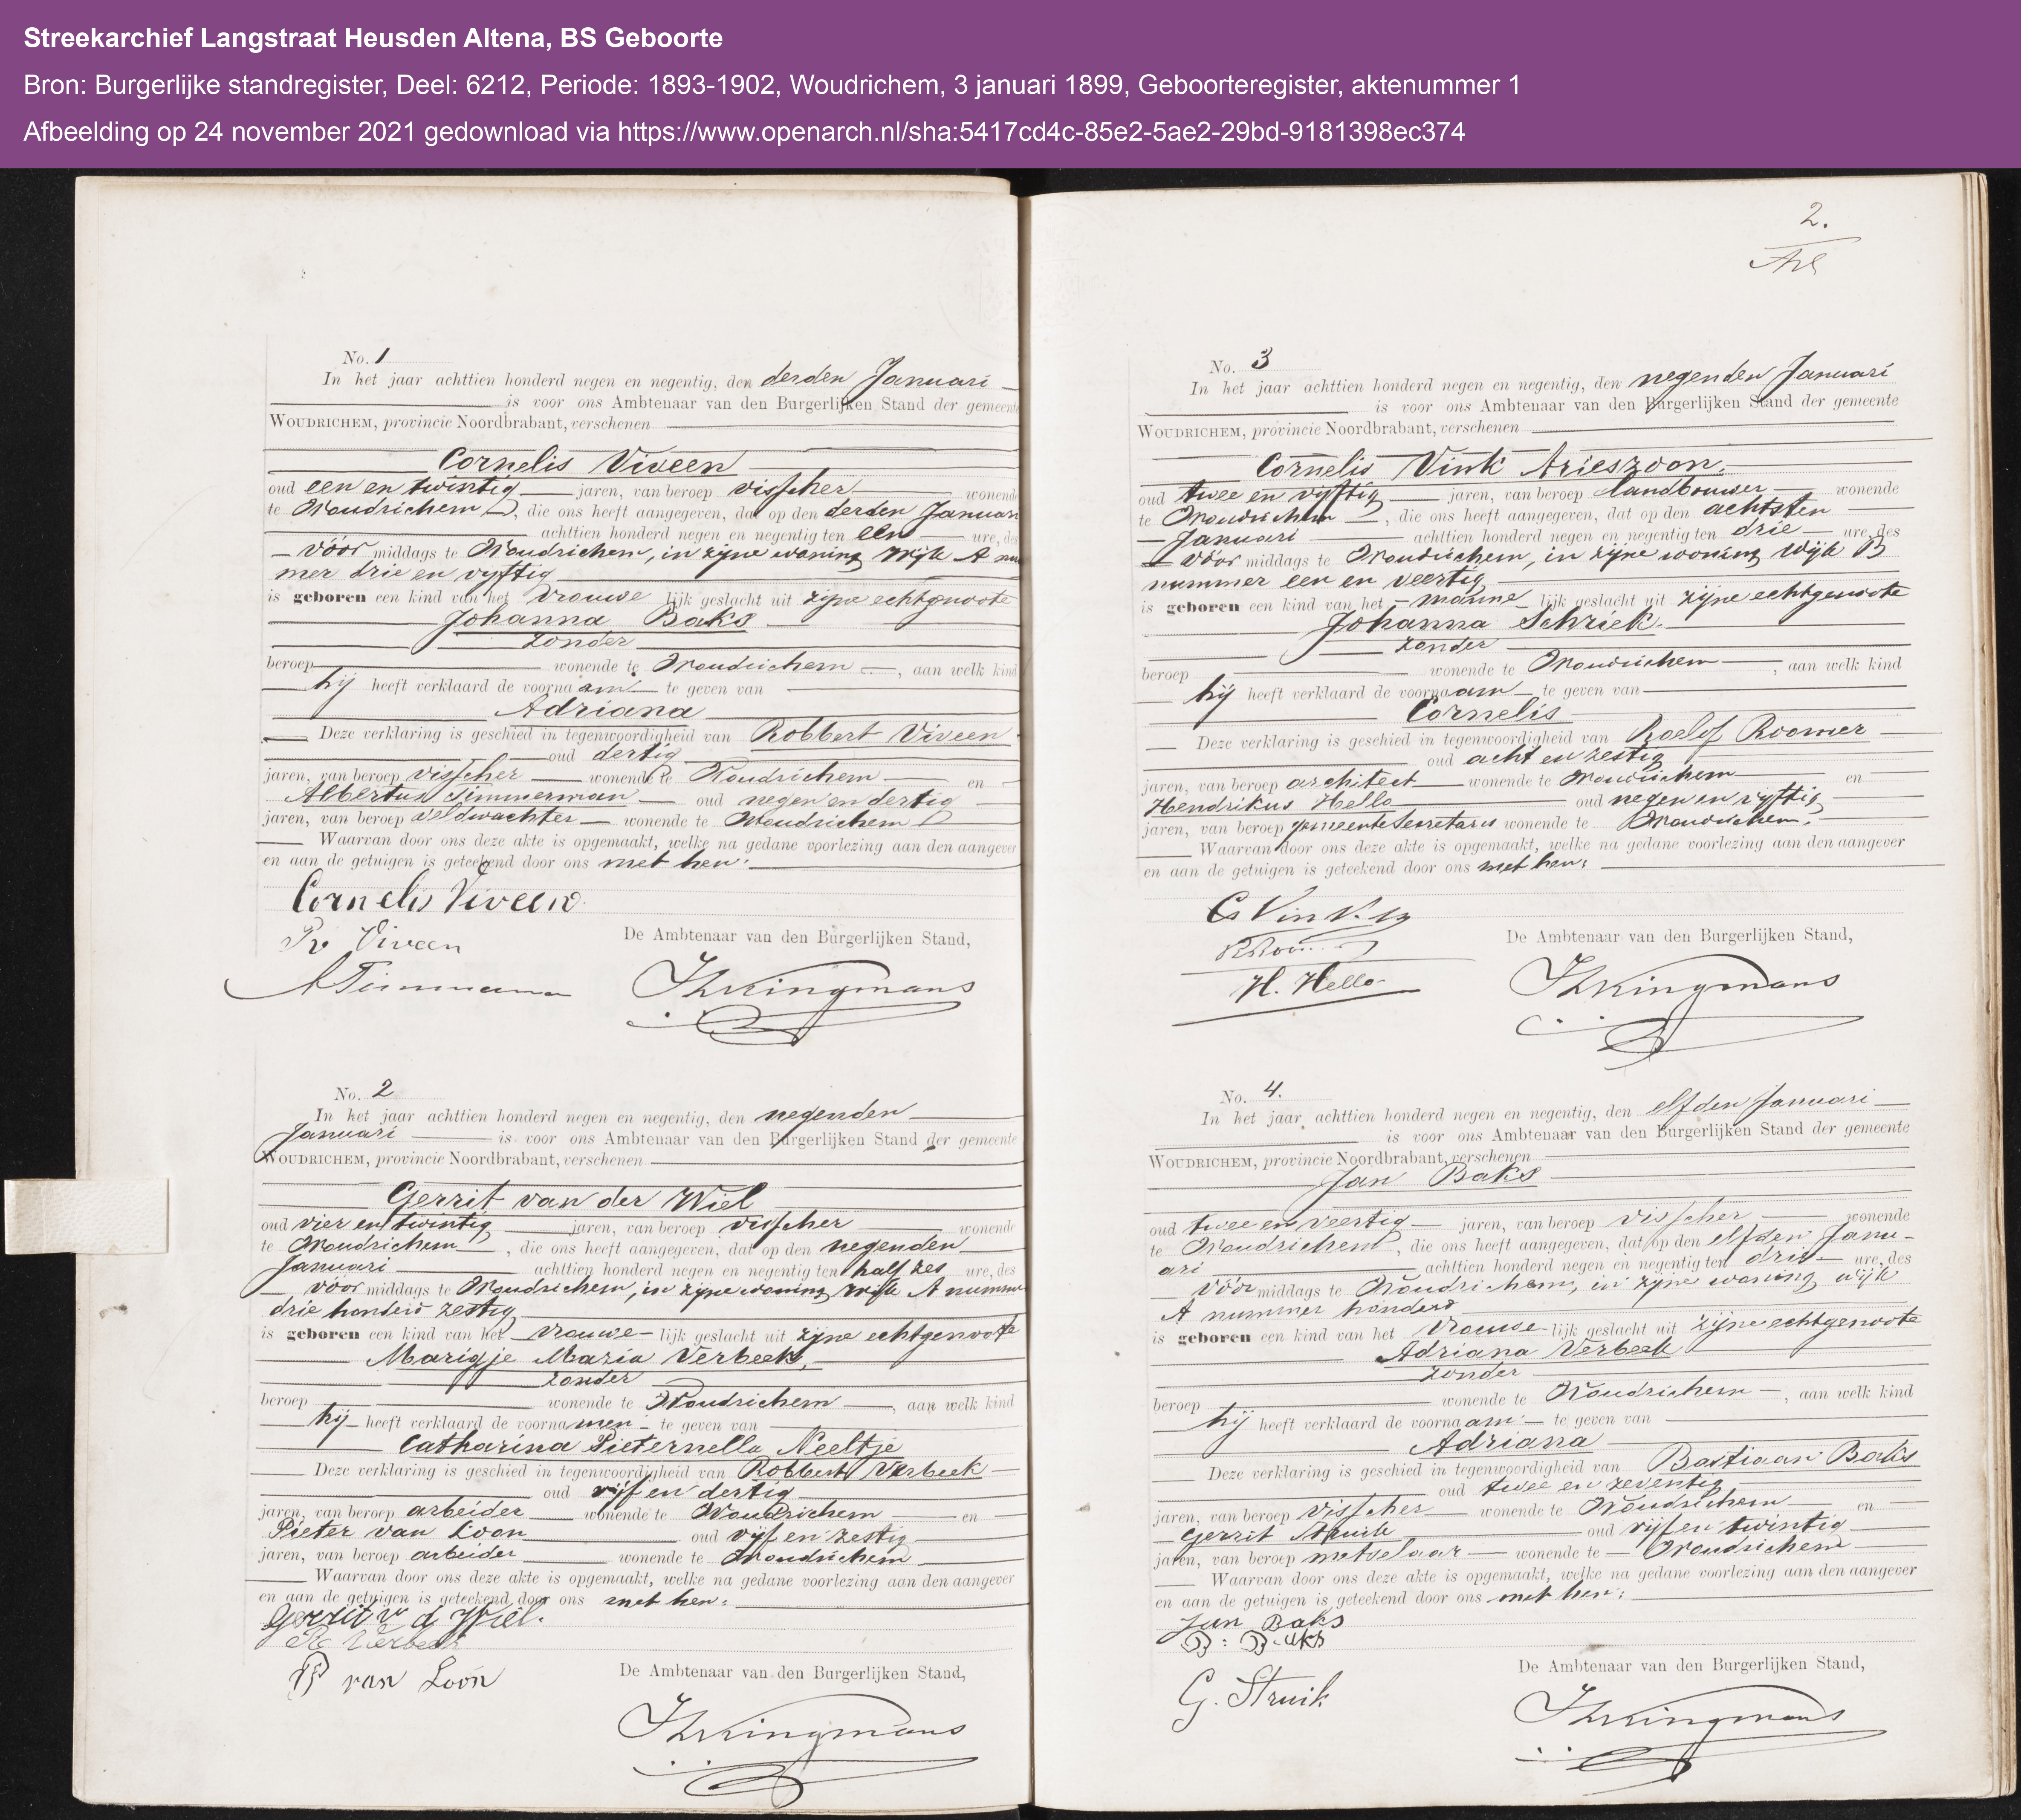 Streekarchief Langstraat Heusden Altena, BS Geboorte
Bron: Burgerlijke standregister, Deel: 6212, Periode: 1893-1902, Woudrichem, 3 januari 1899, Geboorteregister, aktenummer 1
Afbeelding op 24 november 2021 gedownload via https://www.openarch.nl/sha:5417cd4c-85e2-5ae2-29bd-9181398ec374
No. 1
In het jaar achttien honderd negen en negentig, den derden Januari
is voor ons Ambtenaar van den Burgerlijken Stand der gemeente
WOUDRICHEM, provincie Noordbrabant, verschenen
Cornelis Viveen
oud een en twintig jaren, van beroep visscher wonende
te Woudrichem, die ons heeft aangegeven, dat op den derden Januari
achttien honderd negen en negentig ten een ure, des
vóór middags te Woudrichem, in zijne woning Wijk A num
mer drie en vyftig
is geboren een kind van het vrouwe lijk geslacht uit zijne echtgenoote
Johanna Baks
zonder
beroep wonende te Woudrichem, aan welk kind
hij heeft verklaard de voornaam te geven van
Adriana
Deze verklaring is geschied in tegenwoordigheid van Robbert Viveen
oud dertig
jaren, van beroep visscher wonende te Woudrichem en
Albertus Timmerman oud negen en dertig
jaren, van beroep veldwachter wonende te Woudrichem
Waarvan door ons deze akte is opgemaakt, welke na gedane voorlezing aan den aangever
en aan de getuigen is geteekend door ons met hen.
Cornelis Viveen
R Viveen
De Ambtenaar van den Burgerlijken Stand,
A Timmerman
Kingmans
No. 2
In het jaar achttien honderd negen en negentig, den negenden
Januari is voor ons Ambtenaar van den Burgerlijken Stand der gemeente
WOUDRICHEM, provincie Noordbrabant, verschenen
Gerrit van der Wiel
oud vier en twintig jaren, van beroep visscher wonende
te Woudrichem, die ons heeft aangegeven, dat op den negenden
Januari achttien honderd negen en negentig ten half zes ure, des
vóór middags te Woudrichem, in zijne woning wijk A nummer
drie honderd zestig
is geboren een kind van het vrouwe-lijk geslacht uit zijne echtgenoote
Marigje Maria Verbeek,
zonder
beroep wonende te Woudrichem, aan welk kind
hij heeft verklaard de voornamen te geven van
Catharina Pieternella Neeltje
Deze verklaring is geschied in tegenwoordigheid van Robbert Verbeek
oud vijf en dertig
jaren, van beroep arbeider wonende te Woudrichem en
Pieter van Loon oud vijf en zestig
jaren, van beroep arbeider wonende te Woudrichem
Waarvan door ons deze akte is opgemaakt, welke na gedane voorlezing aan den aangever
en aan de getuigen is geteekend door ons met hen.
Gerrit v d Wiel.
R Verbeek
P van Loon
De Ambtenaar van den Burgerlijken Stand,
Kingmans
2.
No. 3
In het jaar achttien honderd negen en negentig, den negenden Januari
is voor ons Ambtenaar van den Burgerlijken Stand der gemeente
WOUDRICHEM, provincie Noordbrabant, verschenen
Cornelis Vink Arieszoon,
oud twee en vyftig jaren, van beroep landbouwer wonende
te Woudrichem, die ons heeft aangegeven, dat op den achtsten
Januari achttien honderd negen en negentig ten drie ure, des
vóór middags te Woudrichem, in zijne woning Wijk B
nummer een en veertig
is geboren een kind van het manne lijk geslacht uit zijne echtgenoote
Johanna Schriek
zonder
beroep wonende te Woudrichem, aan welk kind
hij heeft verklaard de voornaam te geven van
Cornelis
Deze verklaring is geschied in tegenwoordigheid van Roelof Roomer
oud acht en zestig
jaren, van beroep architect wonende te Woudrichem en
Hendrikus Hello oud negen en vijftig
jaren, van beroep gemeente Secretaris wonende te Woudrichem.
Waarvan door ons deze akte is opgemaakt, welke na gedane voorlezing aan den aangever
en aan de getuigen is geteekend door ons met hen.
De Ambtenaar van den Burgerlijken Stand,
H. Hello
Kingmans
No. 4.
In het jaar achttien honderd negen en negentig, den elfden Januari
is voor ons Ambtenaar van den Burgerlijken Stand der gemeente
WOUDRICHEM, provincie Noordbrabant, verschenen
Jan Baks
oud twee en veertig jaren, van beroep visscher wonende
te Woudrichem, die ons heeft aangegeven, dat op den elfden Janu-
ari achttien honderd negen en negentig ten drie ure, des
vóór middags te Woudrichem, in zijne woning wijk
A nummer honderd
is geboren een kind van het vrouwe-lijk geslacht uit zijne echtgenoote
Adriana Verbeek
zonder
beroep wonende te Woudrichem, aan welk kind
hij heeft verklaard de voornaam te geven van
Adriana
Deze verklaring is geschied in tegenwoordigheid van Bastiaan Baks
oud twee en zeventig
jaren, van beroep visscher wonende te Woudrichem en
Gerrit Struik oud vijf en twintig
jaren, van beroep metselaar wonende te Woudrichem
Waarvan door ons deze akte is opgemaakt, welke na gedane voorlezing aan den aangever
en aan de getuigen is geteekend door ons met hen.
Jan Baks
B: Baks
G. Struik
De Ambtenaar van den Burgerlijken Stand,
Kingmans